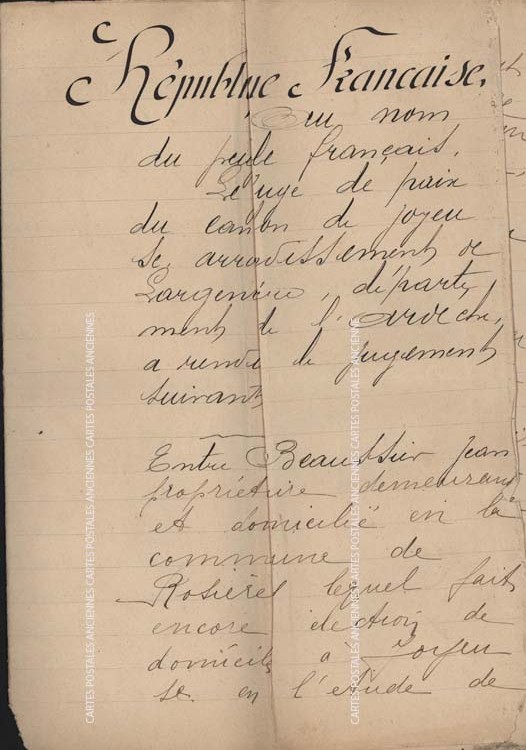 République Française,
Au nom
du peule français.
Le Juge de paix
du canton de Joyeu
se, arrodissement de
Largentière, départe,
ment de l'Ardèche,
a rendu le jugement
suivant
Entre Beaussier Jean
propriétaire demeurant
et domicilié en la
commune de
Rosières lequel fait
encore élection de
domicile à Joyeu
se en l'étude de
CARTES POSTALES ANCIENNES CARTES POSTALES ANCIENNES CARTES POSTALES ANCIENNES
CARTES POSTALES ANCIENNES CARTES POSTALES ANCIENNES CARTES POSTALES ANCIENNES